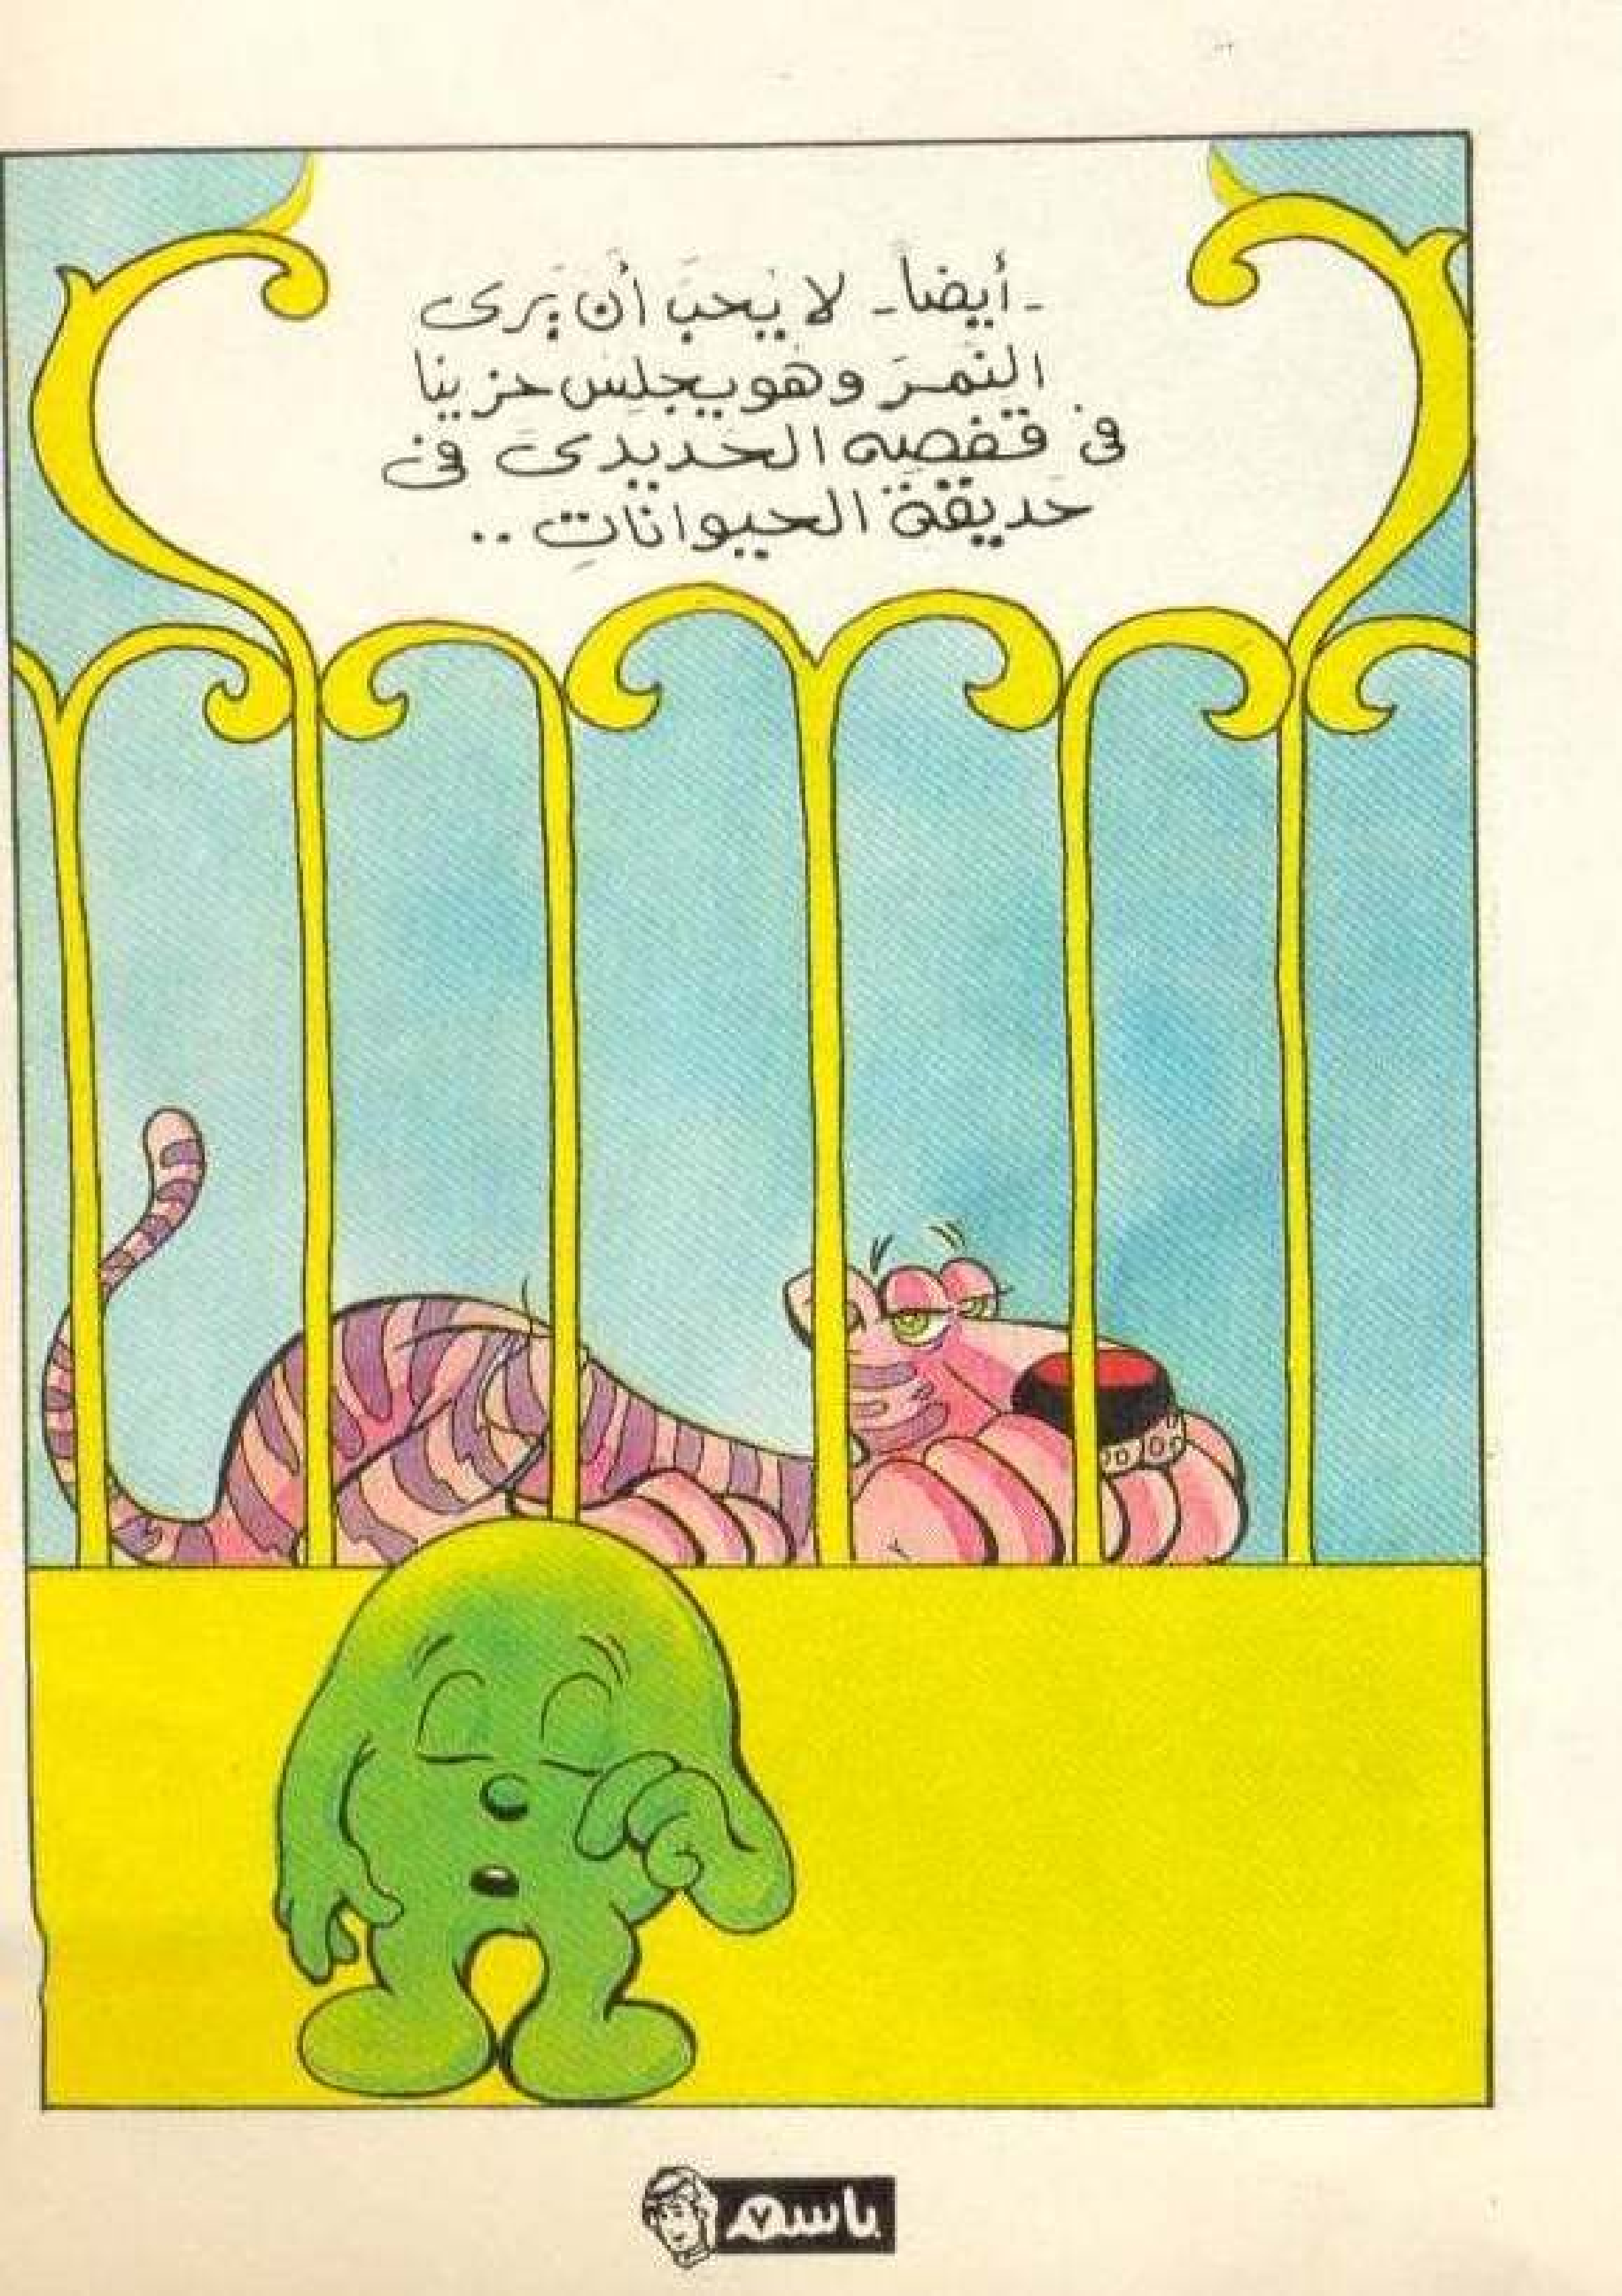 - أيضاً - لا يُحبّ أن يَرى
النّمرَ وهو يجلس حزينا
في قفصِه الحديدى فى
حديقة الحيواناتِ ..
باسم
٧